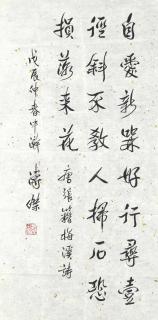 自愛新楳好行尋壹
徑斜不教人掃石恐
損落来花
唐張籍梅溪詩
戊辰仲春中澣 溥傑